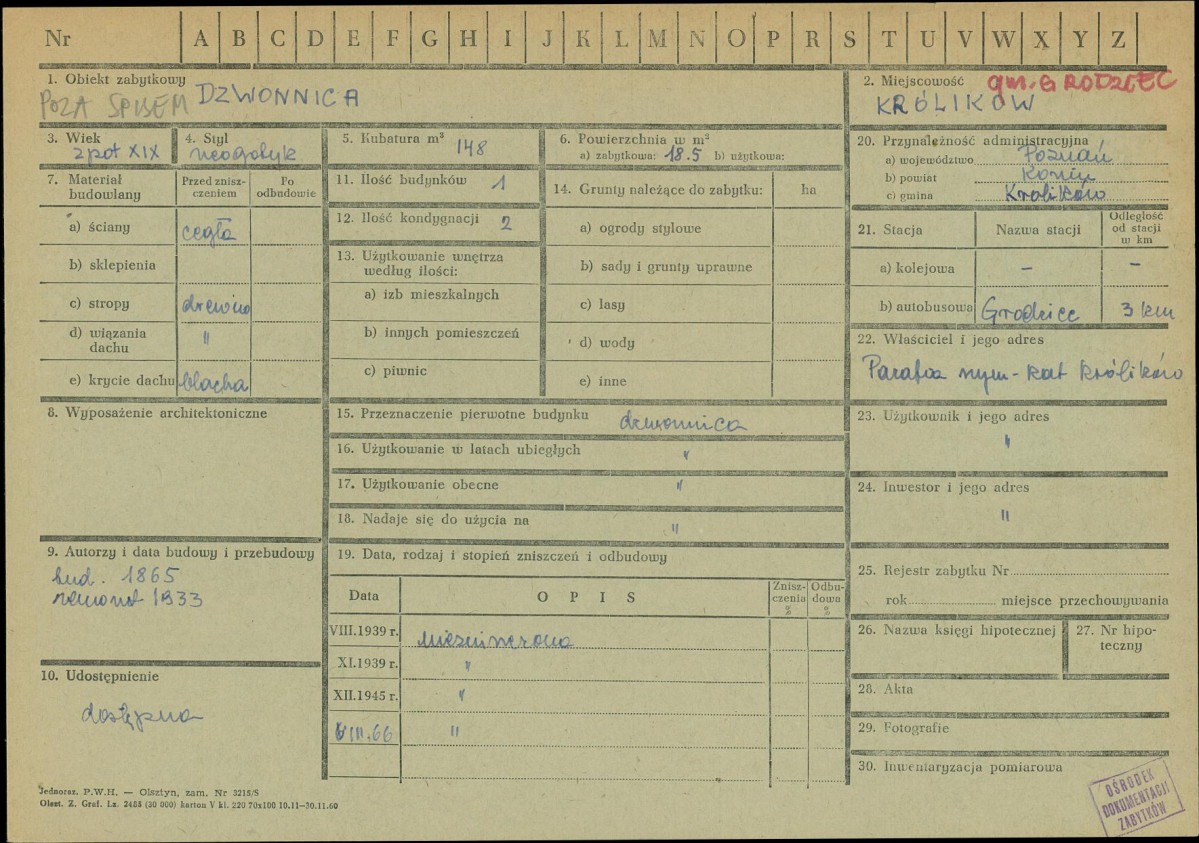 Nr A B C D E F G H I J K L M N O P R S T U V W X Y Z
1. Obiekt zabytkowy
POZA SPISEM DZWONNICA
2. Miejscowość gm. GRODZIEC
KRÓLIKÓW
3. Wiek
2 poł XIX
4. Styl
neogotyk
5. Kubatura m³ 148
6. Powierzchnia w m²
a) zabytkowa: 18.5 b) użytkowa:
7. Materiał budowlany
Przed znisz-
czeniem
Po
odbudowie
a) ściany cegła
b) sklepienia
c) stropy drewno
d) wiązania
dachu "
e) krycie dachu blacha
8. Wyposażenie architektoniczne
9. Autorzy i data budowy i przebudowy
bud. 1865
remont 1933
10. Udostępnienie
dostępna
11. Ilość budynków 1
12. Ilość kondygnacji 2
13. Użytkowanie wnętrza
według ilości:
a) izb mieszkalnych
b) innych pomieszczeń
c) piwnic
14. Grunty należące do zabytku: ha
a) ogrody stylowe
b) sady i grunty uprawne
c) lasy
d) wody
e) inne
15. Przeznaczenie pierwotne budynku dzwonnica
16. Użytkowanie w latach ubiegłych "
17. Użytkowanie obecne "
18. Nadaje się do użycia na "
19. Data, rodzaj i stopień zniszczeń i odbudowy
Data O P I S
Znisz-
czenia
%
Odbu-
dowa
%
VIII.1939 r. niezniszczona
XI.1939 r. "
XII.1945 r. "
III.66 "
20. Przynależność administracyjna
a) województwo Poznań
b) powiat Konin
c) gmina Królików
21. Stacja Nazwa stacji
Odległość
od stacji
w km
a) kolejowa – –
b) autobusowa Grodziec 3 km
22. Właściciel i jego adres
Parafia rzym-kat Królików
23. Użytkownik i jego adres
"
24. Inwestor i jego adres
"
25. Rejestr zabytku Nr
rok miejsce przechowywania
26. Nazwa księgi hipotecznej
27. Nr hipo-
teczny
28. Akta
29. Fotografie
30. Inwentaryzacja pomiarowa
OŚRODEK
DOKUMENTACJI
ZABYTKÓW
Jednoraz. P.W.H. — Olsztyn, zam. Nr 3215/S
Olszt. Z. Graf. Lz. 2465 (30 000) karton V kl. 220 70x100 10.11—30.11.60